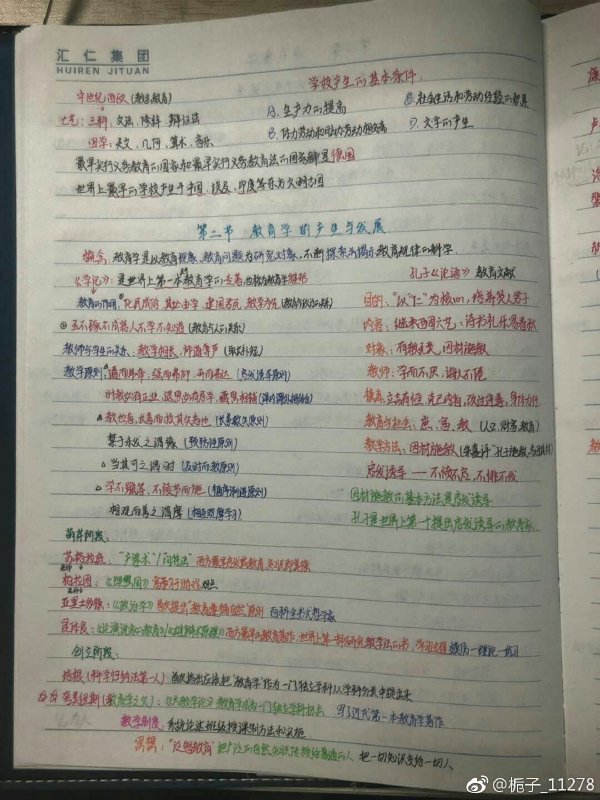 汇仁集团
HUIREN JITUAN
学校产生的基本条件:
中世纪西欧 (教会教育)
A. 生产力的提高
C. 社会生活和劳动经验的积累
七艺: 三科: 文法、修辞、辩证法
B. 体力劳动和脑力劳动相分离
D. 文字的产生
四学: 天文、几何、算术、音乐
最早实行义务教育的国家和最早实行义务教育法的国家都是德国
世界上最早的学校产生于中国、埃及、印度等东方文明古国
第二节 教育学的产生与发展
概念: 教育学是以教育现象、教育问题为研究对象, 不断探索和揭示教育规律的科学.
《学记》: 是世界上第一本教育学的专著
孔子《论语》 教育文献
教育的作用: 化民成俗, 其必由学. 建国君民, 教学为先
目的: "以"仁"为核心, 培养贤人君子
玉不琢不成器人不学不知道 (教育与人的关系)
内容: 继承西周六艺: 诗书礼乐易春秋
教师与学生的关系: 教学相长, 师道尊严
对象: 有教无类, 因材施教
教学原则: 道而弗牵, 强而弗抑, 开而弗达 (启发诱导原则)
教师: 学而不厌, 诲人不倦
时教必有正业, 退息必有居学. 藏息相辅
德育: 立志有恒, 克己内省, 改过迁善, 身体力行
教也者, 长善而救其失者也 (长善救失原则)
教育与社会: 庶、富、教 (人口 财富 教育)
禁于未发之谓豫 (预防性原则)
教学方法: 因材施教
当其可之谓时 (及时而教原则)
启发诱导 —— 不愤不启, 不悱不发
学不躐等, 不陵节而施 (循序渐进原则)
因材施教的基本方法是启发诱导
相观而善之谓摩 (相互观摩学习)
孔子是世界上第一个提出启发诱导的教育家
萌芽阶段:
苏格拉底: "产婆术"/问答法"
柏拉图: 《理想国》 寓学习于游戏 观点
亚里士多德: 《政治学》 首次提出"教育遵循自然"原则 百科全书式哲学家
昆体良: 《论演说家的教育》/《雄辩术原理》 西方最早的教育著作, 世界上第一本研究教学法的书, 学习过程 模仿—理论—练习
创立阶段:
培根 (科学归纳法第一人) 首次提出应该把"教育学"作为一门独立学科从学科分类中提出来
夸美纽斯 (教育学之父): 《大教学论》 教育学成为一门独立学科标志 近代第一本教育学著作
教学制度: 系统论述班级授课制方法和实施
"泛智教育" 把广泛的自然知识传授给普通的人 把一切知识交给一切人
@栀子_11278